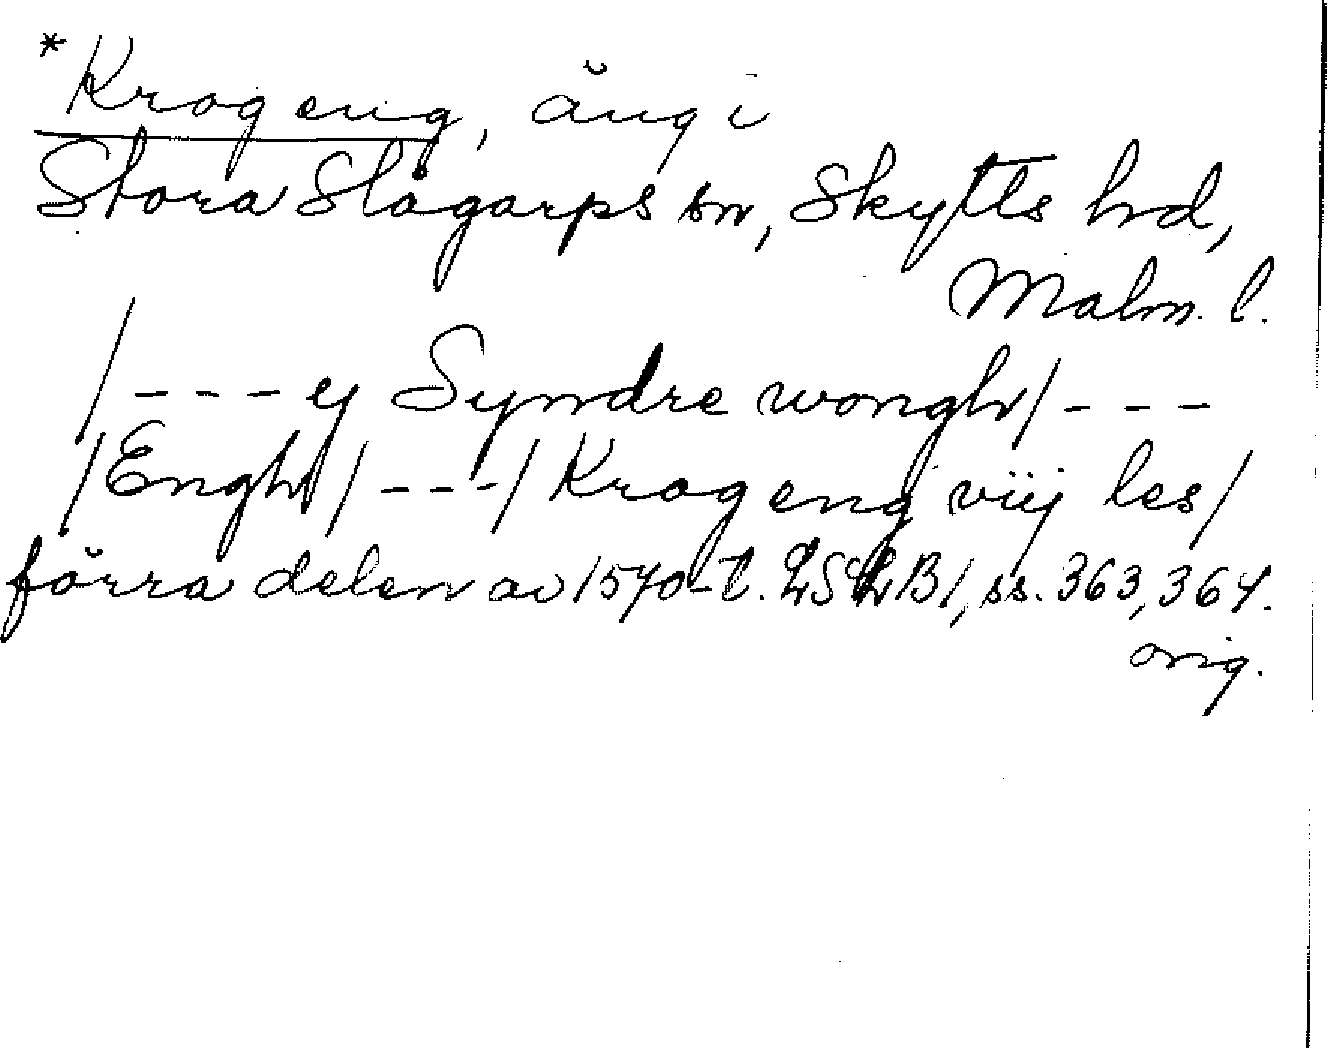 *Krogeng, äng i
Stora Slågarps sn, Skytts hd,
Malm. l.
/---ej Syndre wongh/---
/Engh/---/Krogeng viij les/
förra delen av 1570-t. LSLB1, ss. 363, 364.
orig.